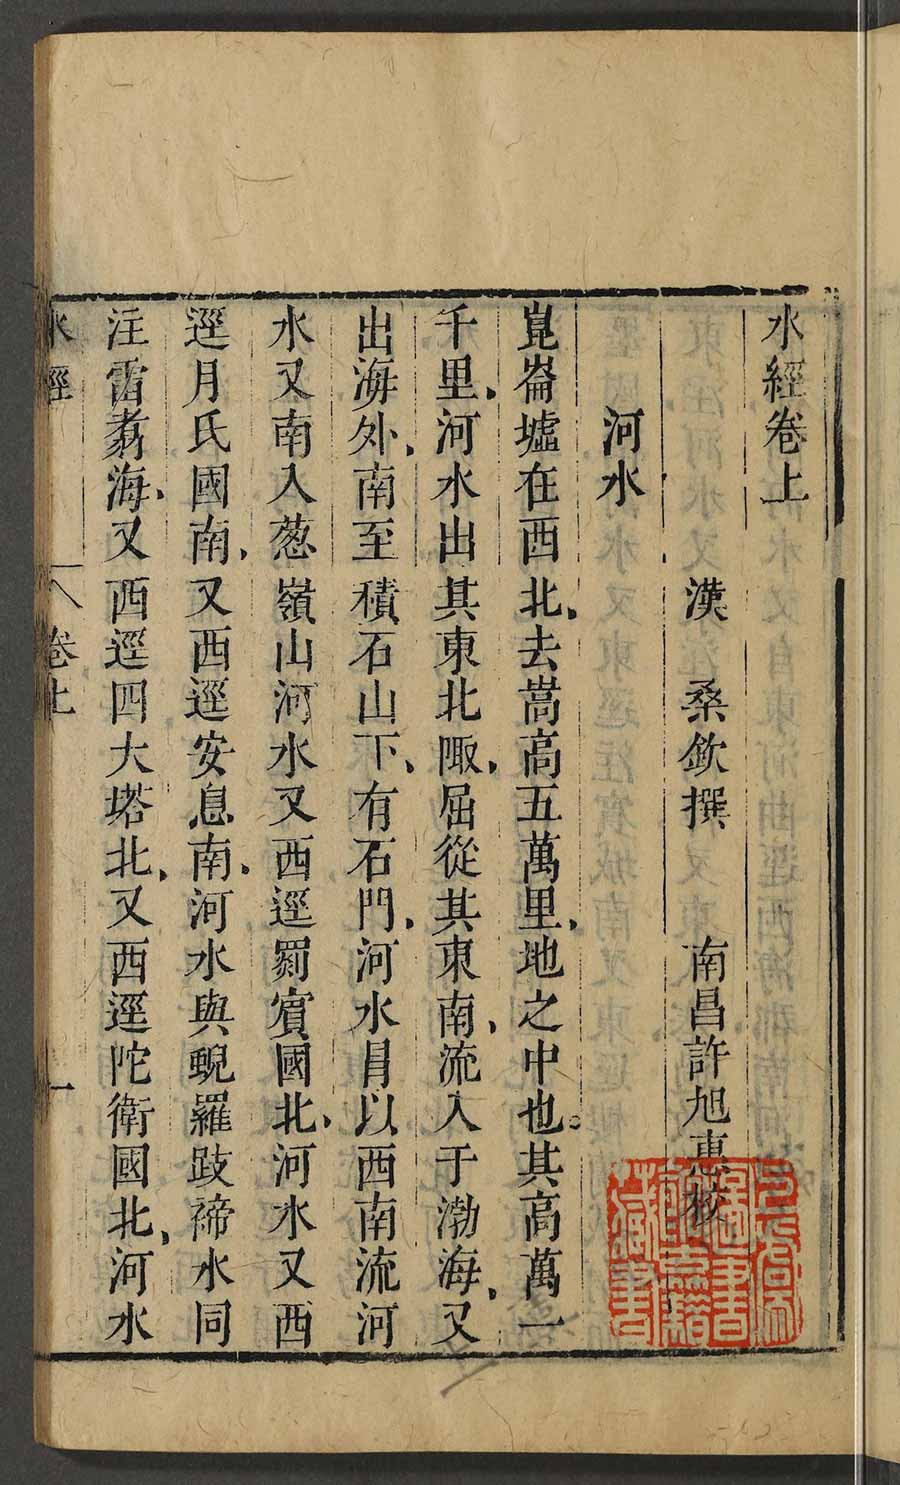 水經卷上
漢　桑欽撰　南昌許旭惠校
河水
崑崙墟在西北、去嵩高五萬里、地之中也。其高萬一
千里、河水出其東北陬、屈從其東南、流入于渤海、又
出海外、南至積石山下、有石門、河水冐以西南流河
水又南入葱嶺山河水又西逕罽賓國北、河水又西
逕月氏國南、又西逕安息南、河水與蜺羅跂禘水同
注雷翥海、又西逕四大塔北、又西逕陀衛國北、河水
水經　卷上　一